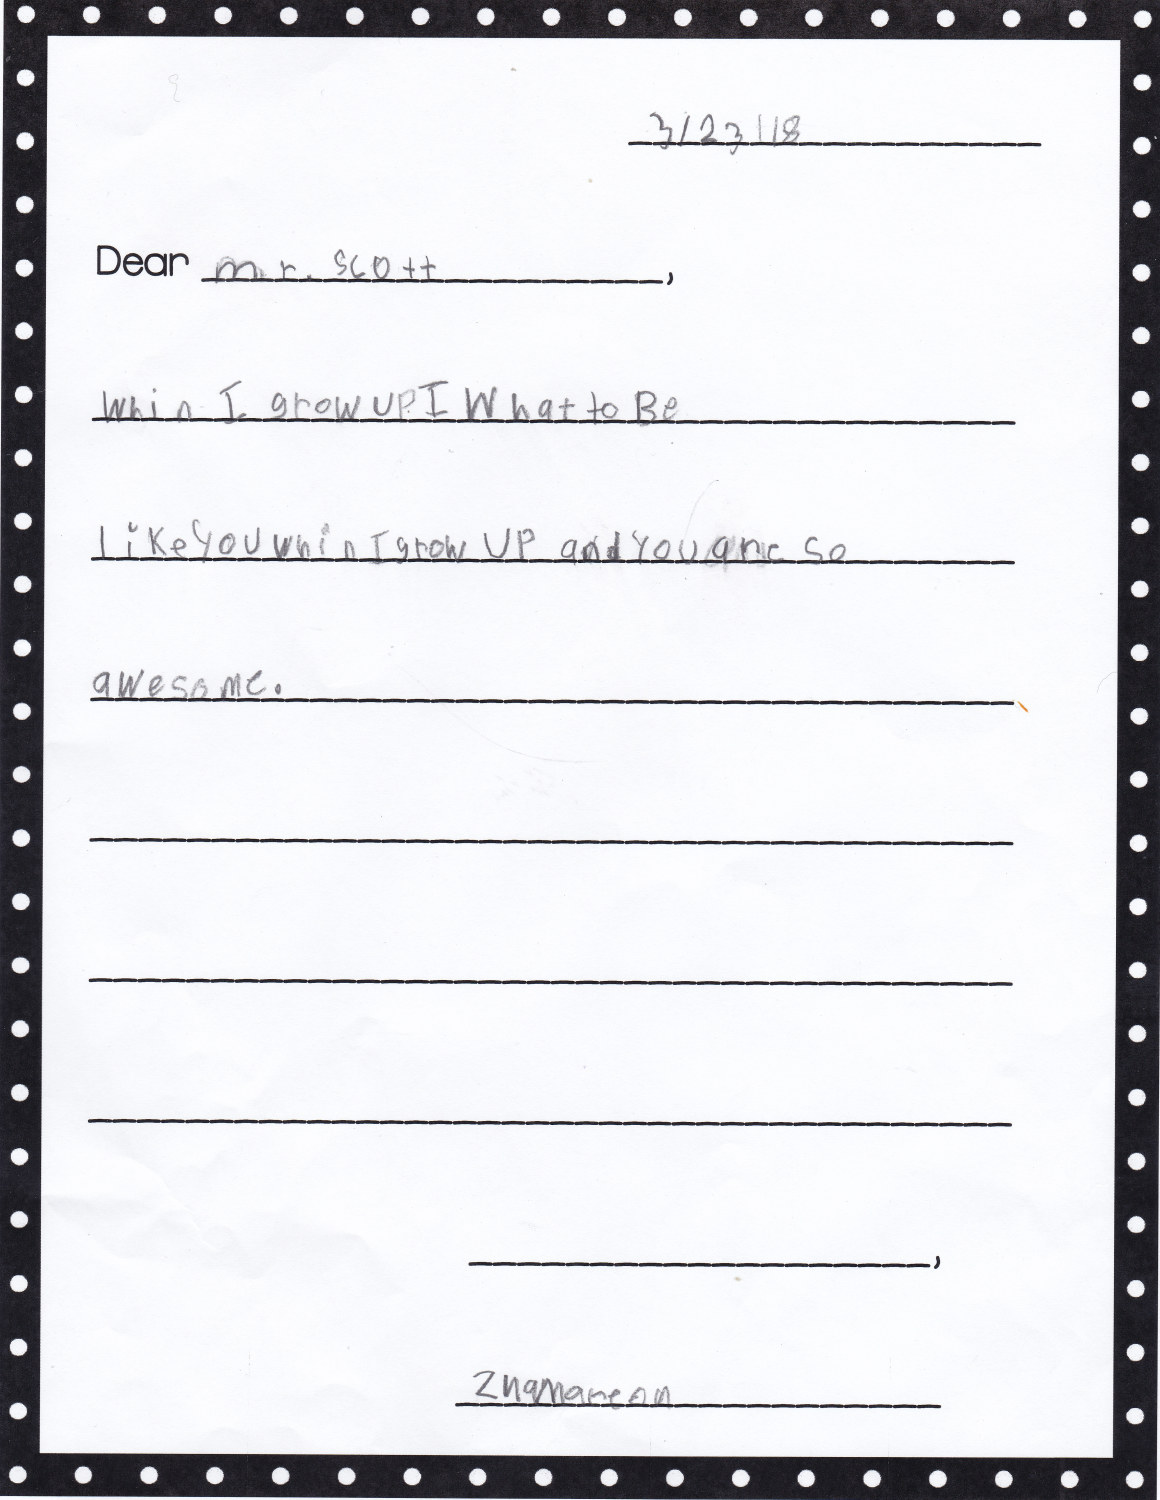 3/23/18
Dear mr. Scott,
Whin I grow UP I What to Be
Like You whin I grow UP and You are so
awesome.
,
Zhamareon